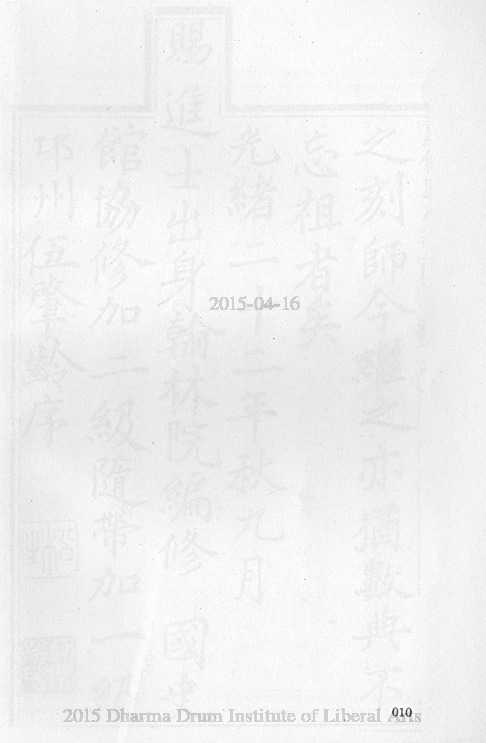 之刻師今繼之亦猶數典不
忘祖者矣
光緒二十二年秋九月
賜進士出身翰林院編修 國史
館協修加二級隨帶加一級
邛州伍肇齡序
2015-04-16
2015 Dharma Drum Institute of Liberal Arts
010